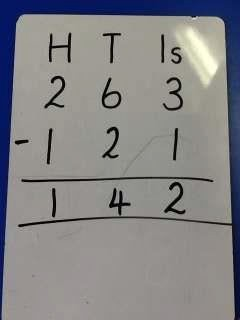 H T 1s
2 6 3
- 1 2 1
1 4 2